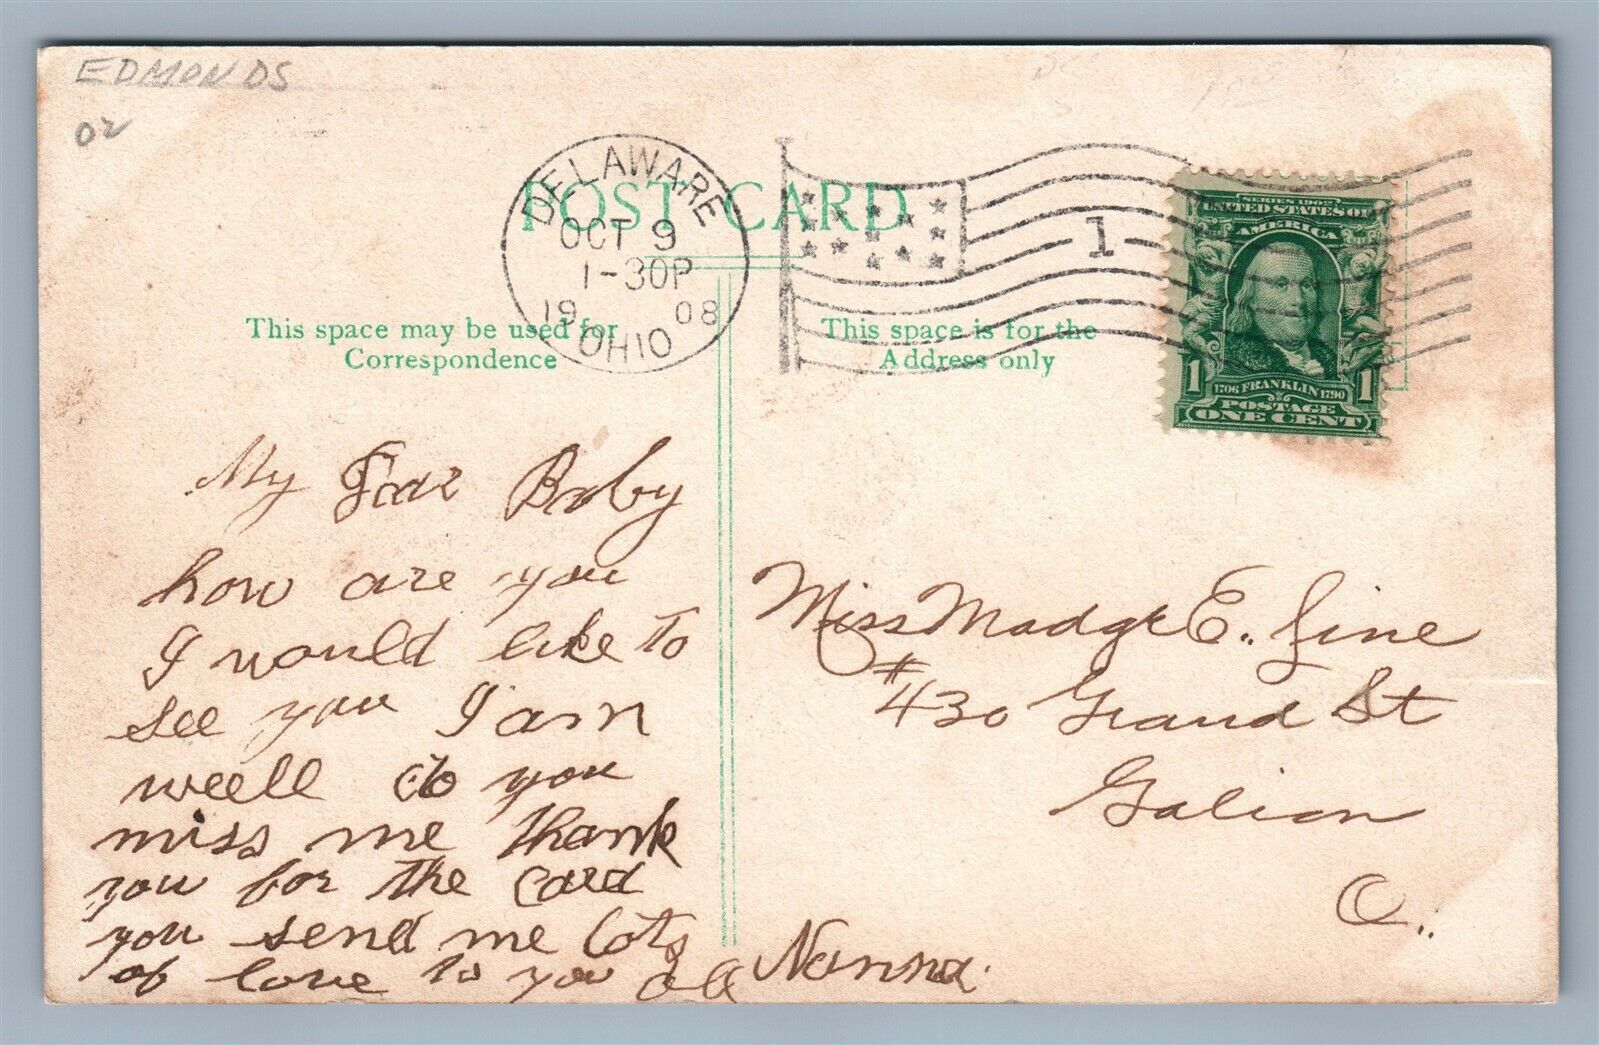 EDMONDS
02
POST CARD
DELAWARE
OCT 9
1-30P
1908
OHIO
1
SERIES 1902
UNITED STATES OF
AMERICA
1 1706 FRANKLIN 1790 1
POSTAGE
ONE CENT
This space may be used for
Correspondence
This space is for the
Address only
My Dear Baby
how are you
I would like to
see you I am
weell do you
miss me thank
you for the card
you send me lots
of love to you all Nonna.
Miss Madge E. Line
#430 Grand St
Galion
O..